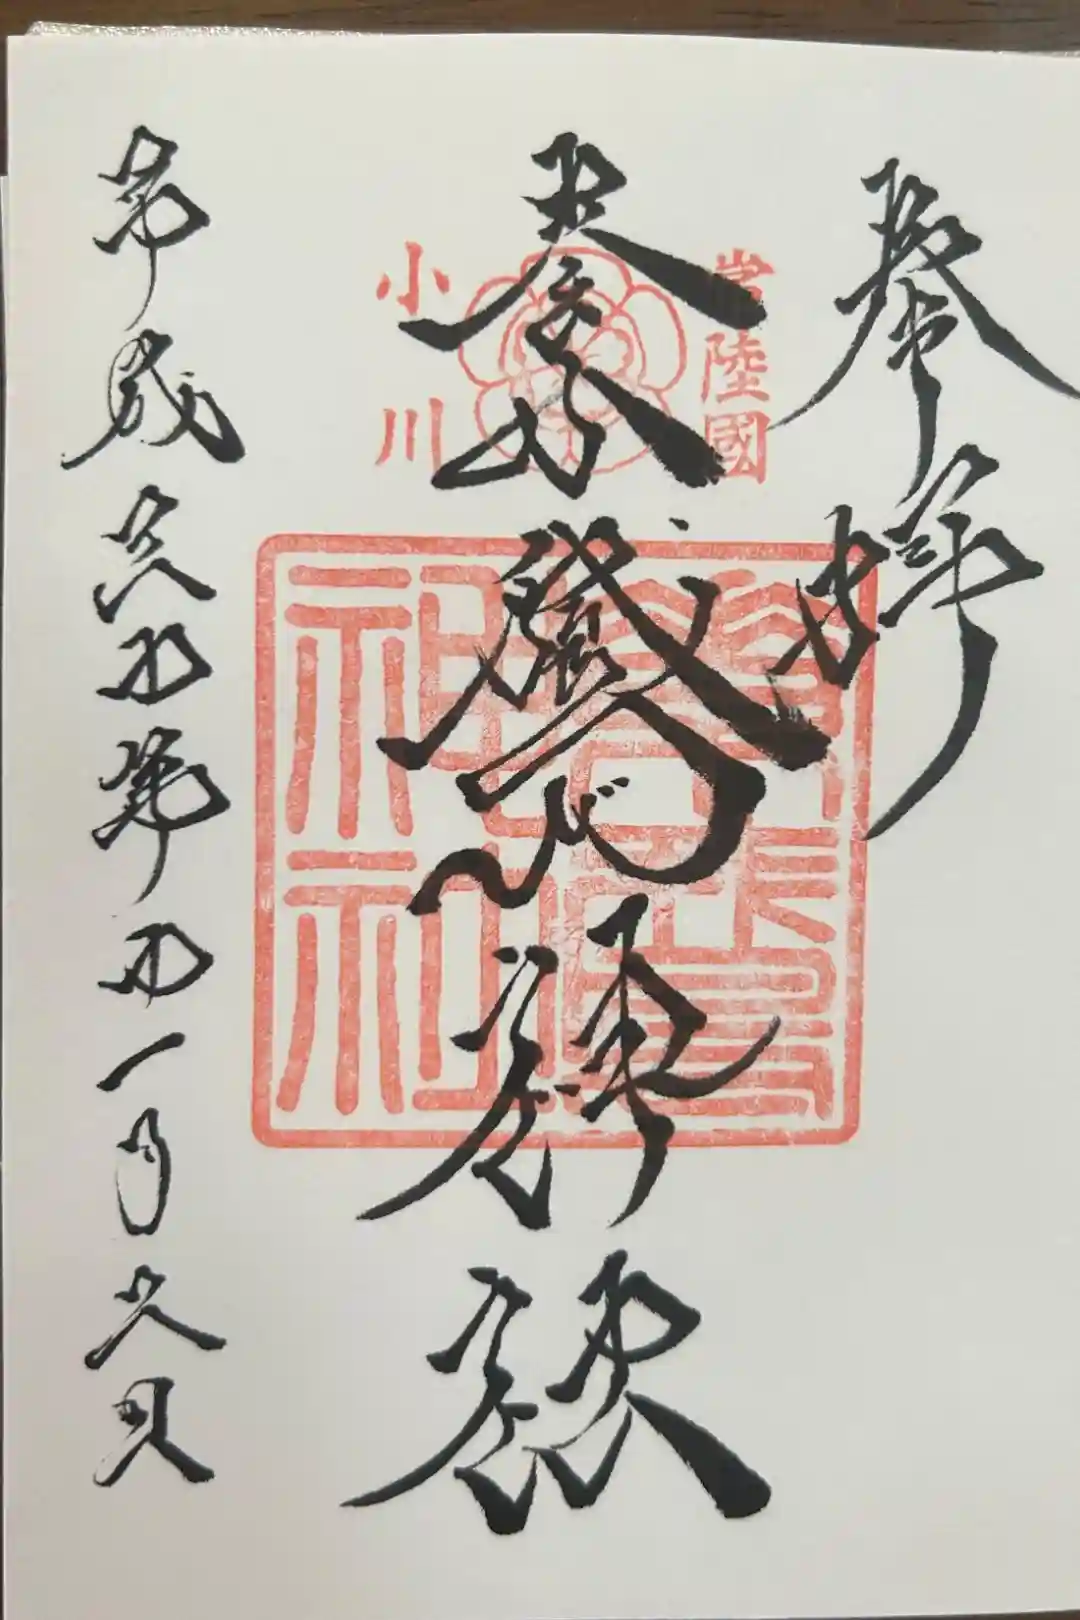 奉拝
常陸國
素鵞神社
小川
素鵞
神社
平成 十年十一月 日